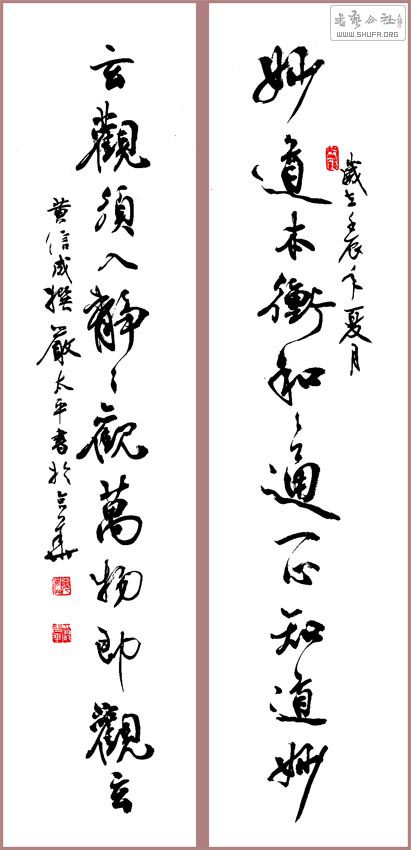 書藝公社
WWW.SHUFA.ORG
歲在壬辰年夏月
妙道本衡和々通一心知道妙
玄觀須入靜々觀萬物即觀玄
黃信成撰 嚴太平書於京華